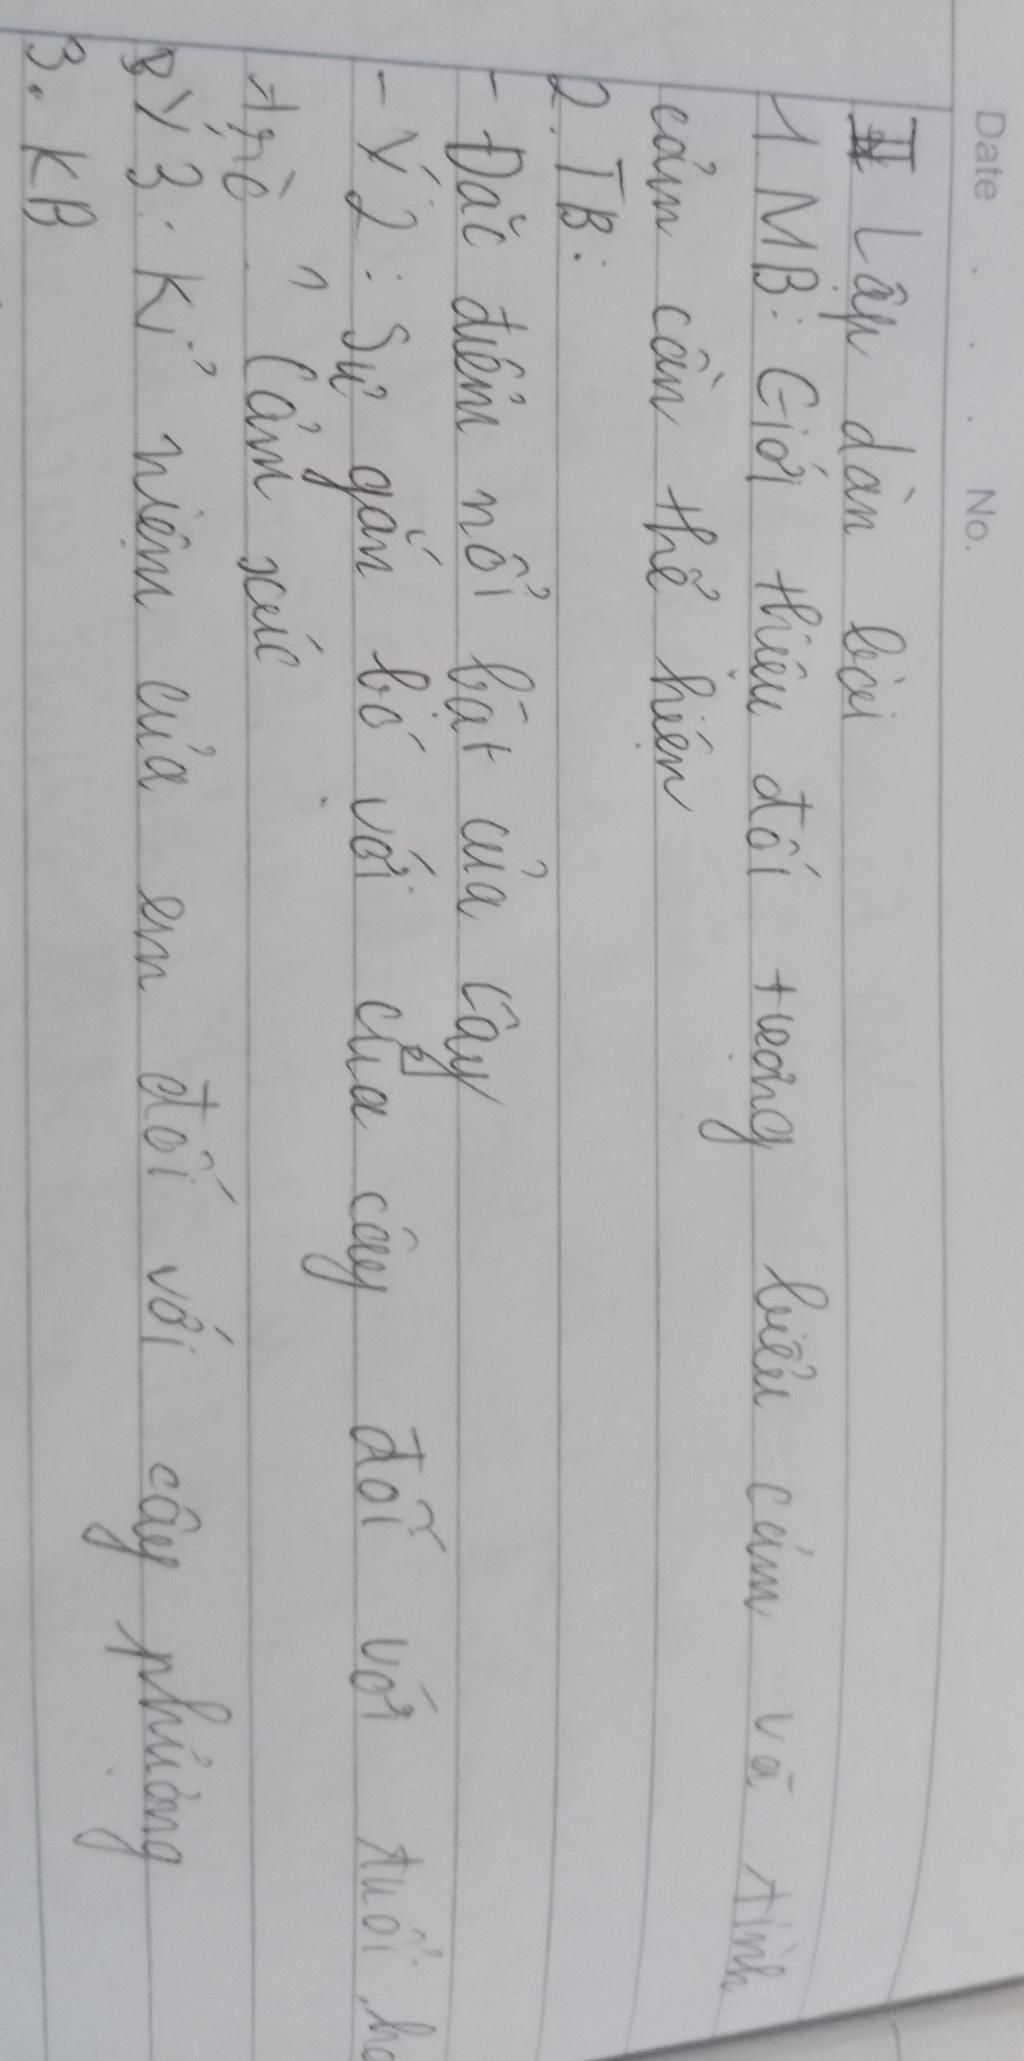 Date No.
II Lập dàn bài
1 MB: Giới thiệu đối tượng biểu cảm và tình
cảm cần thể hiện
2. TB:
- Đặc điểm nổi bật của cây
- Ý 2: Sự gắn bó với của cây đối với tuổi học
trò, cảm xúc
Ý 3: Kỉ niệm của em đối với cây phượng
3. KB